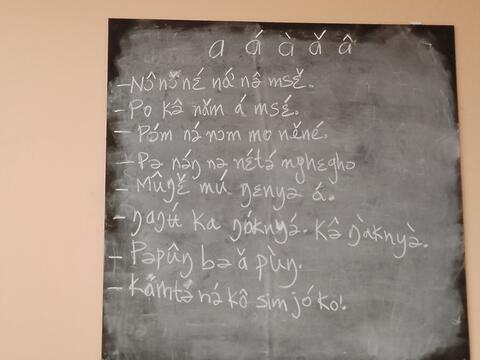 a á à ǎ â
– Nɔ̂ nɔ̌ nɛ́ nə́ nə̂ msɛ̌.
– Po kə̂ nǎm á msɛ́.
– Pə́m nə́ nɔm mo nə̌né.
– Pə náŋ nə nɛ́tə́ mghɛgho
– Mûŋɛ̌ mú ŋɛnyə á.
– ŋaŋʉ́ ka ŋáknyə́. Kə̂ ŋàknyə̀.
– Pəpûŋ bə ǎ pùŋ.
– Kǎmtə́ nə́ kô sim jó ko!